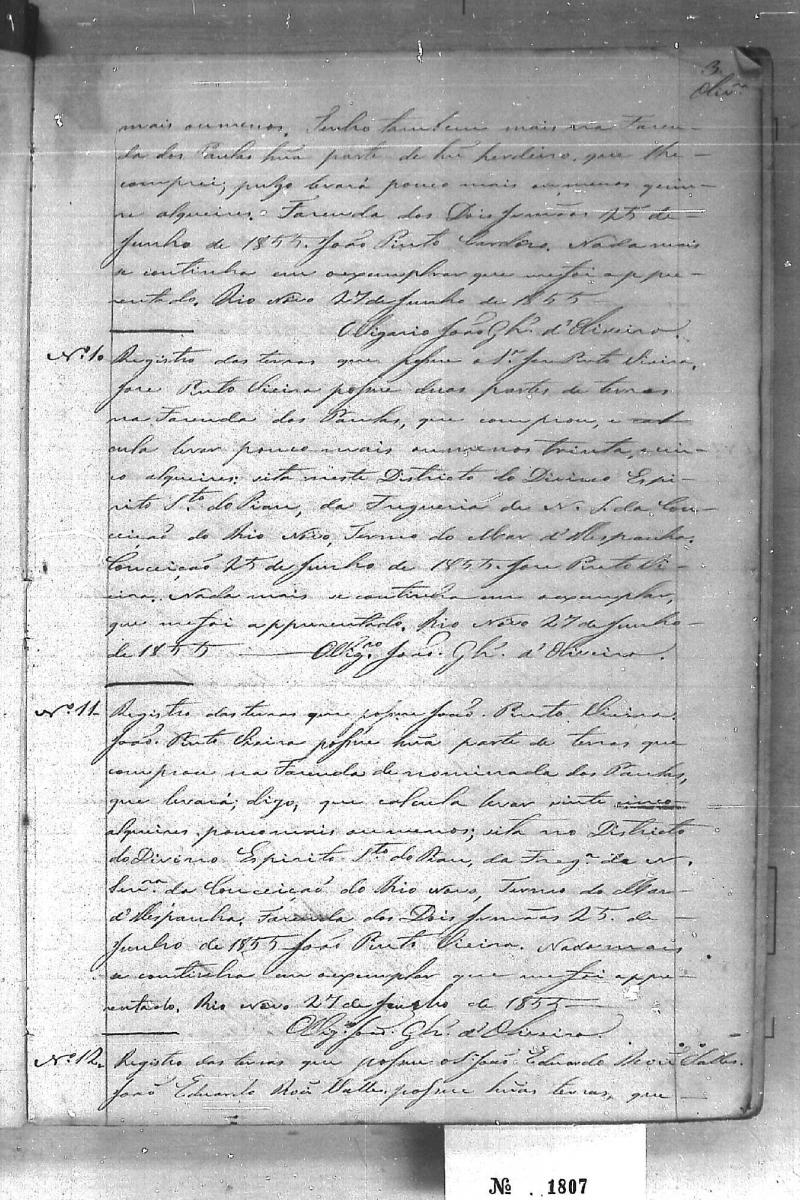 3
Olivrª
mais oumenos. Tenho tambem mais na Fazen-
da dos Paulas hũa parte de hũ herdeiro, que lhe
comprei; julgo levará pouco mais ou menos quin-
ze alqueires. Fazenda dos Dois Irmãos 25 de
Junho de 1855. João Pinto Cardoso. Nada mais
se continha em oexemplar que mefoi appre-
zentado. Rio Novo 27 de Junho de 1855
OVigario João Glz. d'Oliveira.
Nº 10 Registro das terras que possue o Sr. Jose Pinto Vieira.
Jose Pinto Vieira possue duas partes de terras
na Fazenda dos Paulas, que comprou, e cal
cula levar pouco mais oumenos trinta, e cin-
co alqueires: sita neste Districto do Divino Espi-
rito Sto. do Piau, da Freguezia de N. S. da Con-
ceição do Rio Novo, Termo do Mar d'Hespanha.
Conceição 25 de Junho de 1855. Jose Pinto Vi-
eira. Nada mais se continha em oexemplar,
que mefoi apprezentado. Rio Novo 27 de Junho
de 1855 OVigro. João Glz. d'Oliveira.
Nº 11 Registro das terras que possue João Pinto Vieira.
João Pinto Vieira possue hũa parte de terras que
comprou na Fazenda denominada dos Paulas,
que levará; digo, que calcula levar vinte cinco
alqueires, pouco mais oumenos; sita no Districto
do Divino Espirito Sto. do Piau, da Fregª de N.
Senrª da Conceição do Rio Novo, Termo do Mar
d'Hespanha. Fazenda dos Dois Irmãos 25 de
Junho de 1855 João Pinto Vieira. Nada mais
se continha em oexemplar que mefoi appre-
zentado. Rio Novo 27 de Junho de 1855
OVigº João Glz. d'Oliveira.
Nº 12. Registro das terras que possue o Sr. João Eduardo Valle.
João Eduardo Valle possue hũas terras, que
Nº 1807